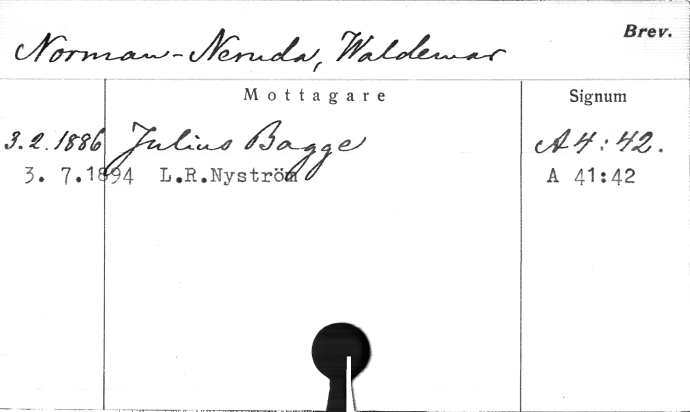 Brev.
Norman-Neruda, Waldemar
Mottagare Signum
3.2.1886 Julius Bagge A4:42.
3. 7.1894 L.R.Nyström A 41:42